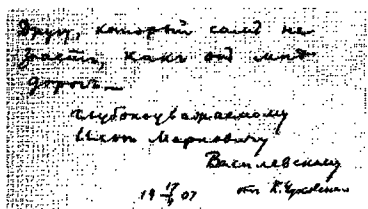 Другу, который самъ не
знаетъ, какъ онъ мнѣ
дорогъ —
глубокоуважаемому
Марковичу
Василевскому
19 17/I 07 отъ К. Чуковскаго